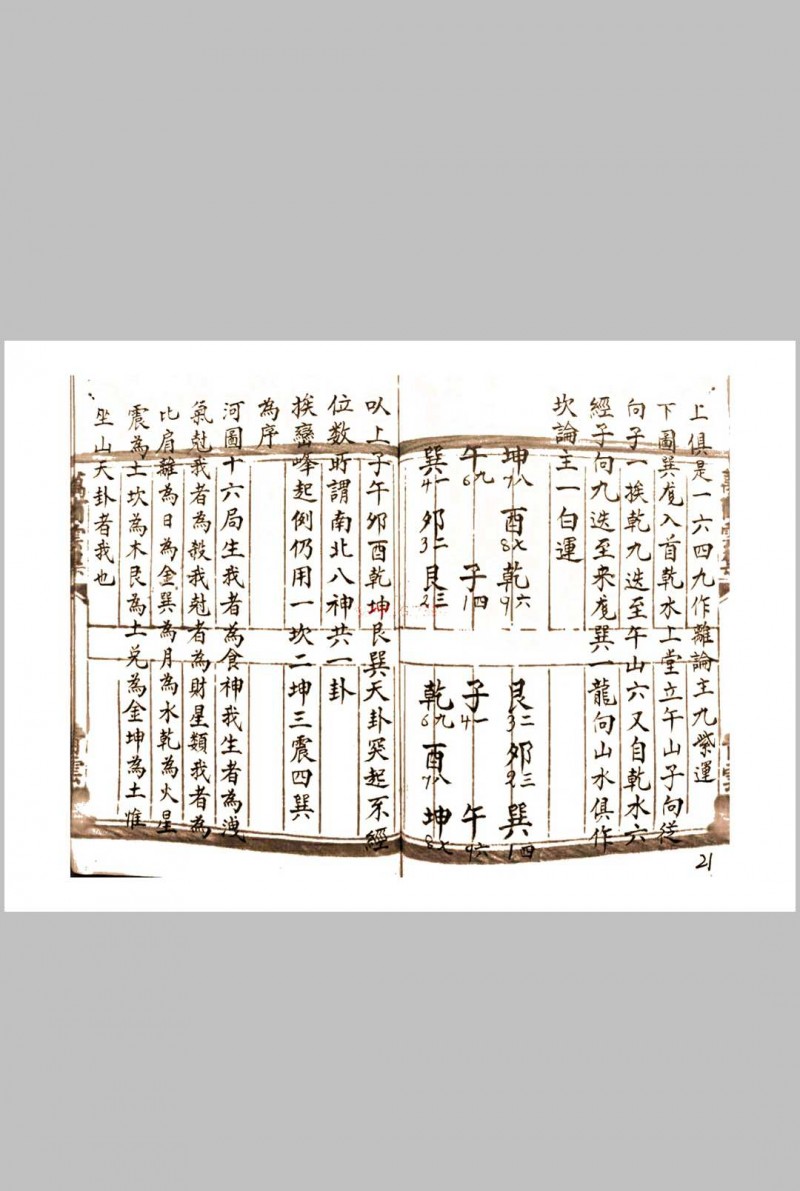 上俱是一六四九作離論主九紫運
下圖巽龍入首乾水上堂立午山子向從
向子一挨乾九迭至午山六又自乾水六
經子向九迭至来龍巽一龍向山水俱作
坎論主一白運
坤 酉 乾
7八 8七 9六
午 子
6九 1四
巽 卯 艮
4一 3二 2三
艮 卯 巽
3二 2三 1四
子 午
4一 9六
乾 酉 坤
6九 7八 8七
21
以上子午卯酉乾坤艮巽天卦突起不經
位数所謂南北八神共一卦
挨巒峰起例仍用一坎二坤三震四巽
為序
河圖十六局生我者為食神我生者為洩
氣尅我者為殺我尅者為財星類我者為
比肩離為日為金巽為月為水乾為火星
震為土坎為木艮為土兌為金坤為土惟
坐山天卦者我也